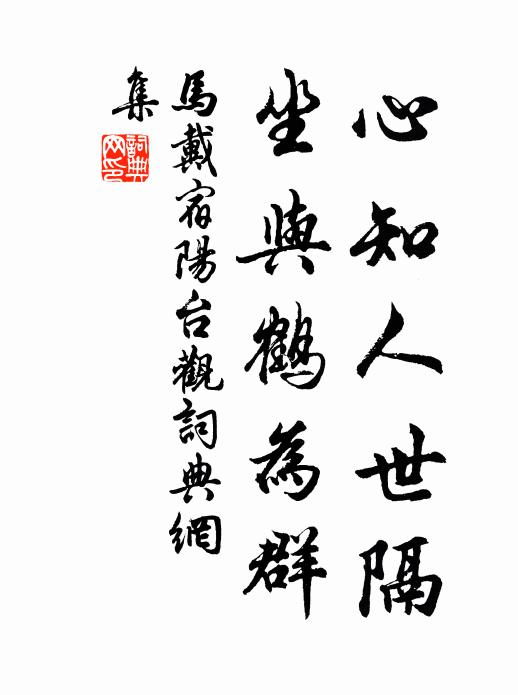 心知人世隔
坐與鶴為群
馬戴宿陽台觀詞典網
集
詞典
网印